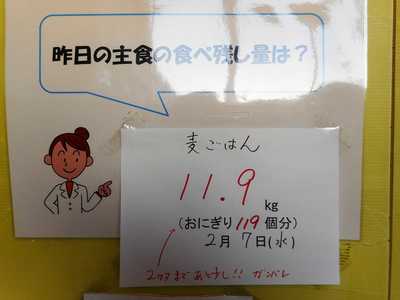 昨日の主食の食べ残し量は？
麦ごはん
11.9
kg
(おにぎり119個分)
2月 7日(水)
2ケタまであと少し!! ガンバレ